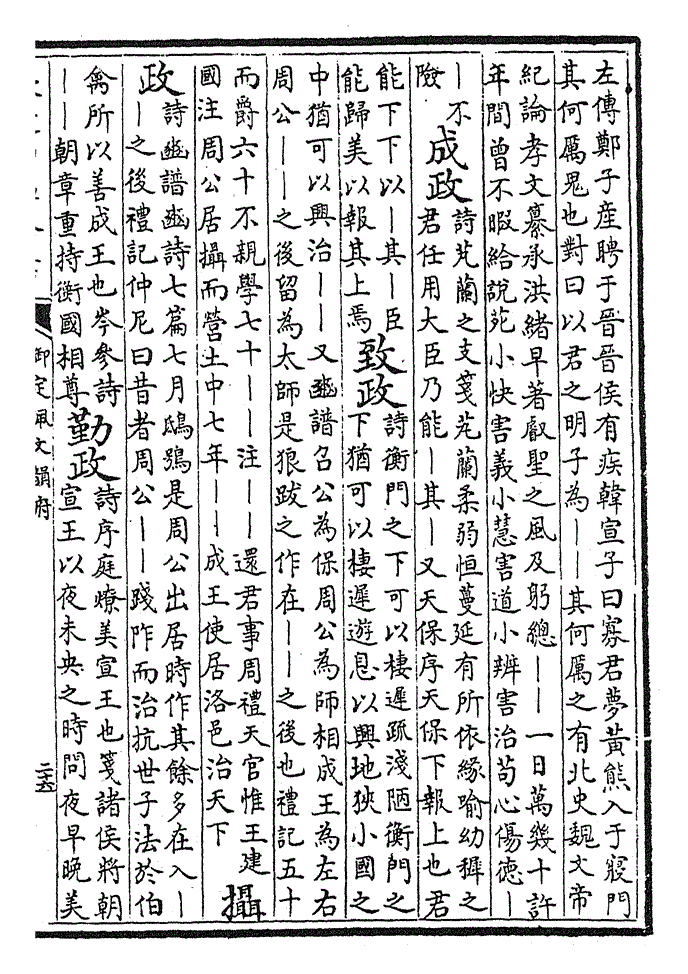 左傳鄭子産聘于晉晉侯有疾韓宣子曰寡君夢黃熊入于寢門
其何厲鬼也對曰以君之明子為——其何厲之有北史魏文帝
紀論孝文纂承洪緒早著叡聖之風及躬總——一日萬幾十許
年間曾不暇給說苑小快害義小慧害道小辨害治苟心傷德—
—不
險
成政
詩芄蘭之支箋芄蘭柔弱恒蔓延有所依緣喻幼穉之
君任用大臣乃能—其—又天保序天保下報上也君
能下下以—其—臣
能歸美以報其上焉
致政
詩衡門之下可以棲遲疏淺陋衡門之
下猶可以棲遲遊息以興地狹小國之
中猶可以興治——又豳譜召公為保周公為師相成王為左右
周公——之後留為太師是狼跋之作在——之後也禮記五十
而爵六十不親學七十——注——還君事周禮天官惟王建
國注周公居攝而營土中七年——成王使居洛邑治天下
攝
政
詩豳譜豳詩七篇七月鴟鴞是周公出居時作其餘多在入—
—之後禮記仲尼曰昔者周公——踐阼而治抗世子法於伯
禽所以善成王也岑參詩
——朝章重持衡國相尊
勤政
詩序庭燎美宣王也箋諸侯將朝
宣王以夜未央之時問夜早晚美
御定佩文韻府